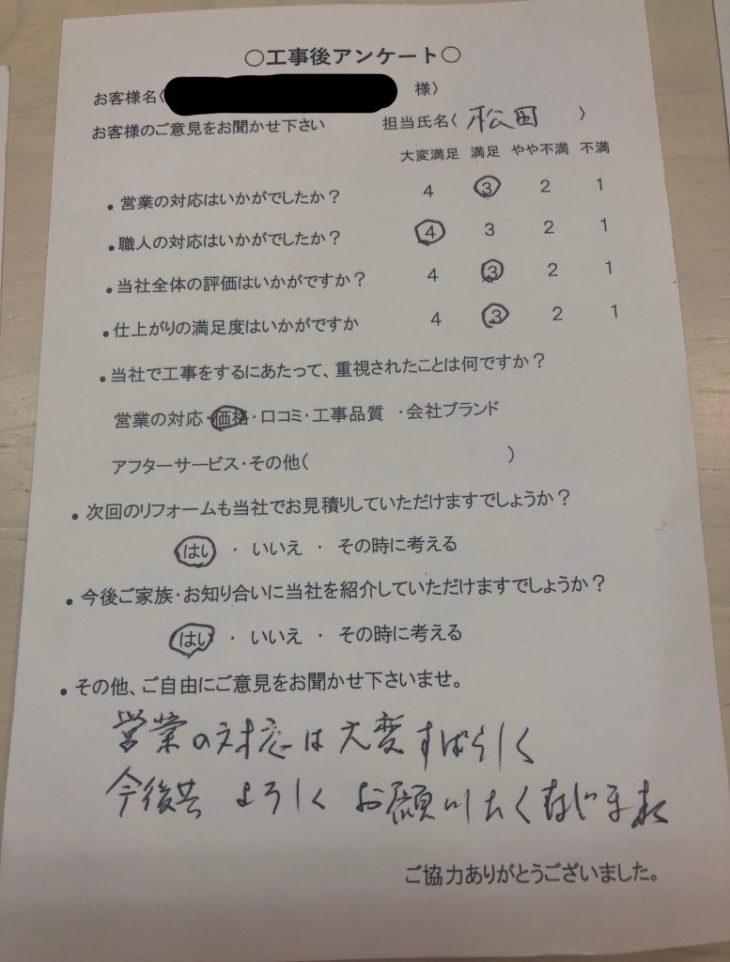 ○工事後アンケート○
お客様名( 様)
お客様のご意見をお聞かせ下さい 担当氏名( 松田 )
大変満足 満足 やや不満 不満
・営業の対応はいかがでしたか? 4 3 2 1
・職人の対応はいかがでしたか? 4 3 2 1
・当社全体の評価はいかがですか? 4 3 2 1
・仕上がりの満足度はいかがですか 4 3 2 1
・当社で工事をするにあたって、重視されたことは何ですか?
営業の対応・価格・口コミ・工事品質 ・会社ブランド
アフターサービス・その他( )
・次回のリフォームも当社でお見積りしていただけますでしょうか?
はい ・ いいえ ・ その時に考える
・今後ご家族・お知り合いに当社を紹介していただけますでしょうか?
はい ・ いいえ ・ その時に考える
・その他、ご自由にご意見をお聞かせ下さいませ。
営業の対応は大変すばらしく
今後共 よろしく お願いしたく
ご協力ありがとうございました。